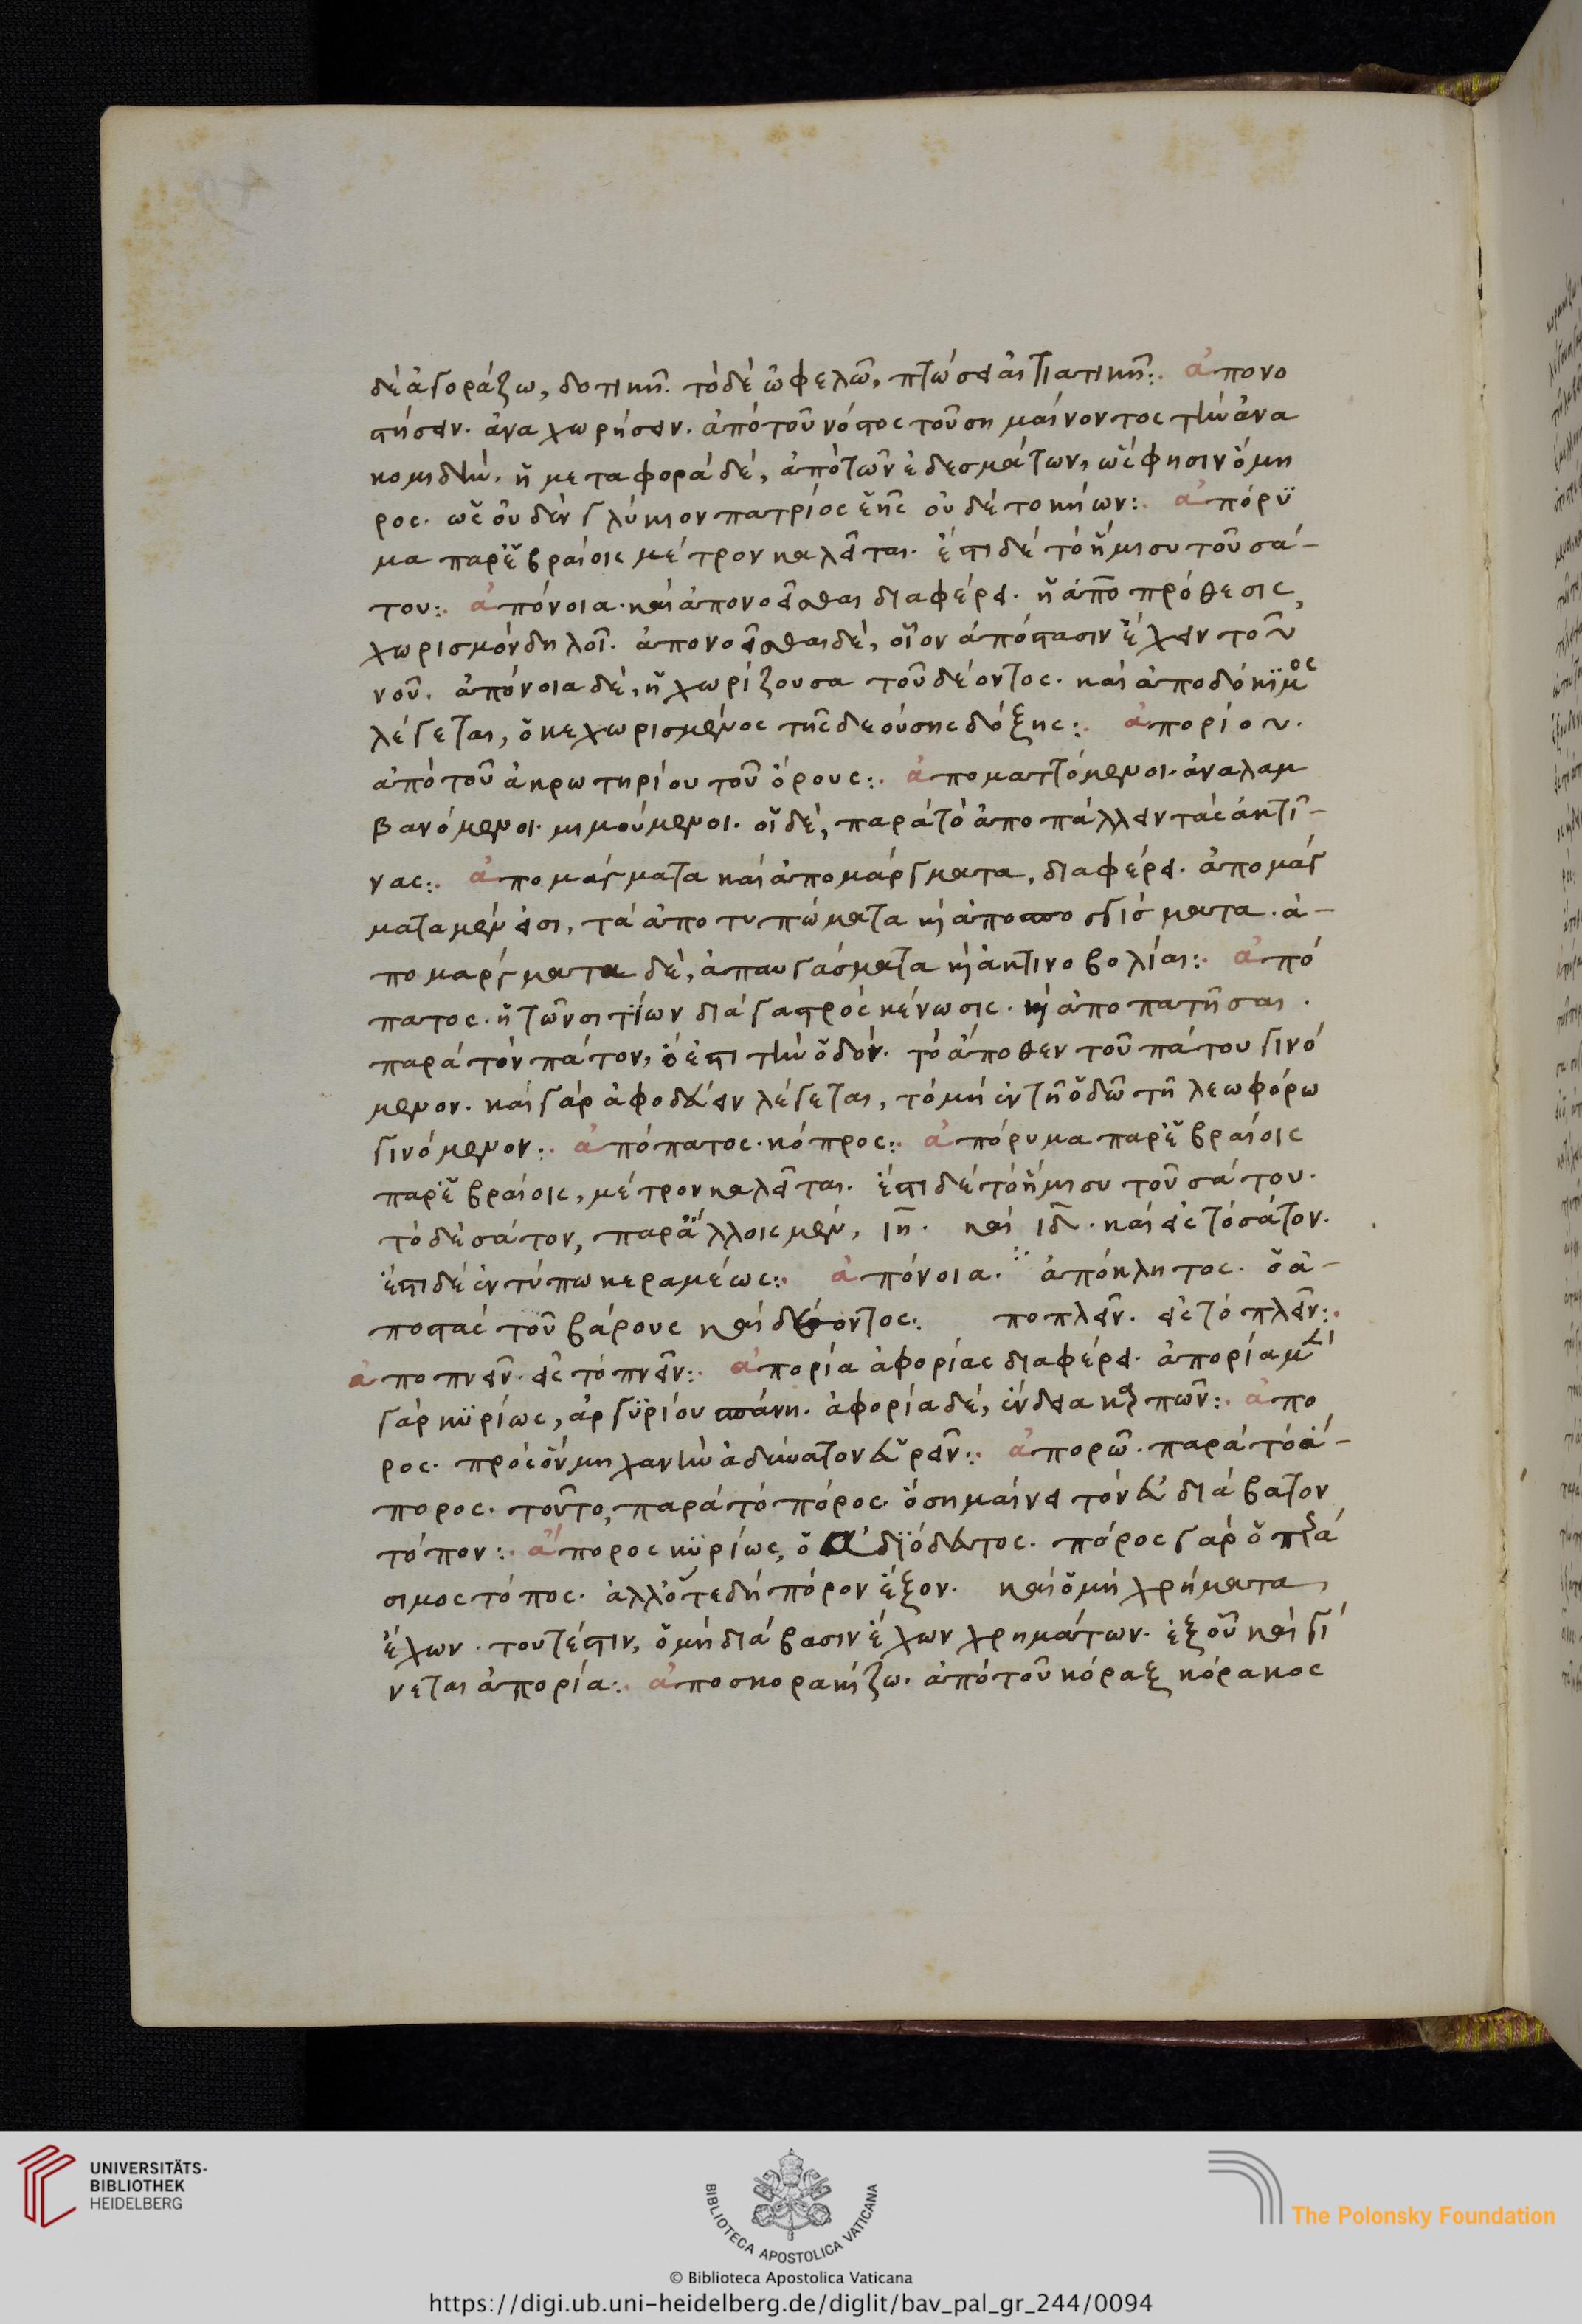 δὲ ἀγοράζω, δοτικῆ. τὸ δὲ ὠφελῶ, πτώσει αἰτιατικῆ:. ἀπονο
στήσειν. ἀναχωρήσειν. ἀπὸ τοῦ νόστος τοῦ σημαίνοντος τὴν ἀνα
κομιδήν. ἡ μεταφορὰ δὲ, ἀπὸ τῶν ἐδεσμάτων, ὡς ἔφησιν ὅμη
ρος. ὡς οὐδὲν γλύκιον πατρίος ἑῆς οὐδὲ τοκήων:. ἀπόρϋ
μα παρ' ἑβραίοις μέτρον καλεῖται. ἔστι δὲ τὸ ἥμισυ τοῦ σά-
του:. ἀπόνοια. καὶ ἀπονοεῖσθαι διαφέρει. ἡ ἀπὸ πρόθεσις,
χωρισμὸν δηλοῖ. ἀπονοεῖσθαι δὲ, οἷον ἀπόστασιν ἔχειν τοῦ
νοῦ. ἀπόνοια δὲ, ἡ χωρίζουσα τοῦ δέοντος. καὶ ἀποδόκιμος
λέγεται, ὁ κεχωρισμένος τῆς δεούσης δόξης:. ἀπορίου.
ἀπὸ τοῦ ἀκρωτηρίου τοῦ ὄρους:. ἀποματτόμενοι. ἀναλαμ
βανόμενοι. μιμούμενοι. οἱ δὲ, παρὰ τὸ ἀποπάλλειν τὰς ἀκτῖ-
νας:. ἀπομάγματα καὶ ἀπομάργματα, διαφέρει. ἀπομάγ
ματα μέν εἰσι, τὰ ἀποτυπώματα καὶ ἀπο σγίσματα. ἀ-
πομάργματα δὲ, ἀπαυγάσματα καὶ ἀκτινοβολίαι:. ἀπό
πατος. ἡ τῶν σιτίων διὰ γαστρὸς κένωσις. καὶ ἀποπατῆσαι.
παρὰ τὸν πάτον, ὅ ἐστι τὴν ὁδόν. τὸ ἄποθεν τοῦ πάτου γινό
μενον. καὶ γὰρ ἀφοδεύειν λέγεται, τὸ μὴ ἐν τῇ ὁδῶ τῇ λεωφόρω
γινόμενον:. ἀπόπατος. κόπρος:. ἀπόρυμα παρ' ἑβραίοις
παρ' ἑβραίοις, μέτρον καλεῖται. ἔστι δὲ τὸ ἥμισυ τοῦ σάτου.
τὸ δὲ σάτον, παρ' ἄλλοις μὲν, ιη. καὶ ιδ. καὶ εἰς τὸ σάτον.
ἔστι δὲ ἐν τύπω κεραμέως:. ἀπόνοια. ἀπόκλητος. ὁ ἀ-
ποστὰς τοῦ βάρους καὶ δέοντος:. ποπλεῖν. εἰς τὸ πλεῖν:.
ἀποπνεῖν. εἰς τὸ πνεῖν:. ἀπορία ἀφορίας διαφέρει. ἀπορία μὲν
γὰρ κϋρίως, ἀργϋρίου σπάνη. ἀφορία δὲ, ἔνδεια καρπῶν:. ἄπο
ρος. πρὸς ὃν μηχανὴν ἀδύνατον εὑρεῖν:. ἀπορῶ. παρὰ τὸ ἄ-
πορος. τοῦτο, παρὰ τὸ πόρος. ὃ σημαίνει τὸν εὐδιάβατον
τόπον:. ἄπορος κϋρίως, ὁ ἀδϊόδευτος. πόρος γὰρ ὁ περά
σιμος τόπος. ἀλλ' ὅτε δὴ πόρον ἷξον. καὶ ὁ μὴ χρήματα
ἔχων. τουτέστιν, ὁ μὴ διάβασιν ἔχων χρημάτων. ἐξ οὗ καὶ γί
νεται ἀπορία:. ἀποσκορακίζω. ἀπὸ τοῦ κόραξ κόρακος
UNIVERSITÄTS-
BIBLIOTHEK
HEIDELBERG
BIBLIOTECA APOSTOLICA VATICANA
The Polonsky Foundation
© Biblioteca Apostolica Vaticana
https://digi.ub.uni-heidelberg.de/diglit/bav_pal_gr_244/0094